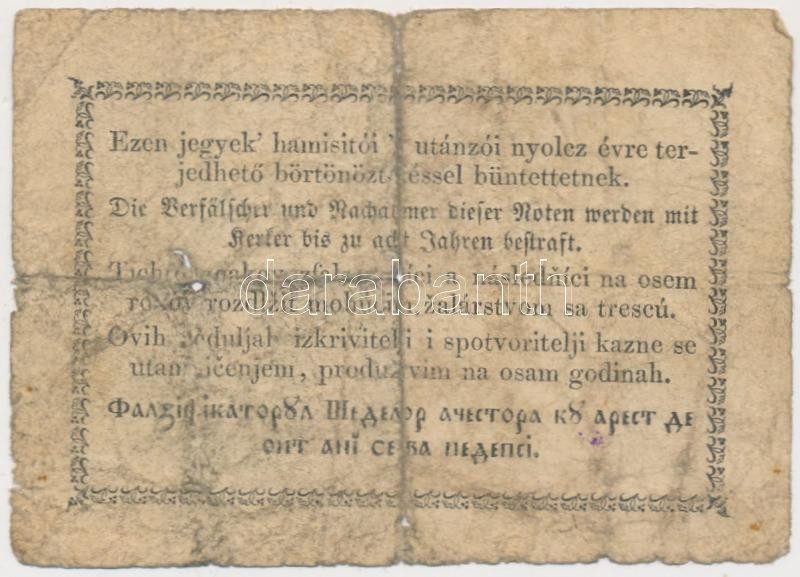 Ezen jegyek' hamisitói 's utánzói nyolcz évre ter-
jedhető börtönöztetéssel büntettetnek.
Die Verfälscher und Nachahmer dieser Noten werden mit
Kerker bis zu acht Jahren bestraft.
a následňíci na osem
rokov mohúcim žalárstvom sa trescú.
Ovih ceduljah izkrivitelji i spotvoritelji kazne se
utamničenjem, produživim na osam godinah.
Фалзіфікаторꙋл Шеделор ачестора кꙋ арест де
опт анї се ва педепсі.
darabanth